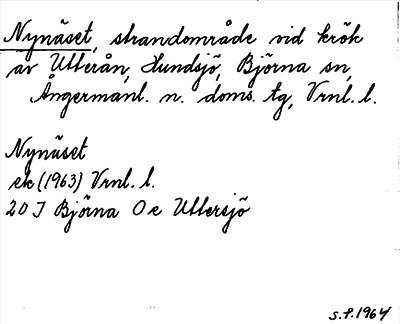 Nynäset, strandområde vid krök
av Utterån, Hundsjö, Björna sn,
Ångermanl. n. doms. tg, Vrnl. l.
Nynäset
ek (1963) Vrnl. l.
20 J Björna 0 e Uttersjö
S.F. 1964